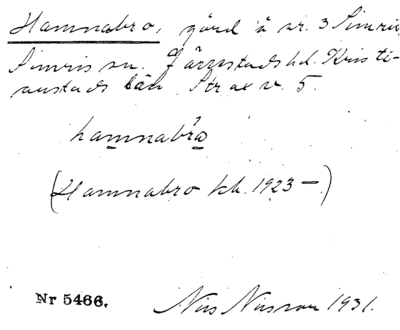 Hamnabro, gård å nr. 3 Simris,
Simris sn. Järrestads hd. Kristi-
anstads län
hamnabra
(Hamnabro kb. 1923 –)
Nr 5466.
Nils Nilsson 1931.